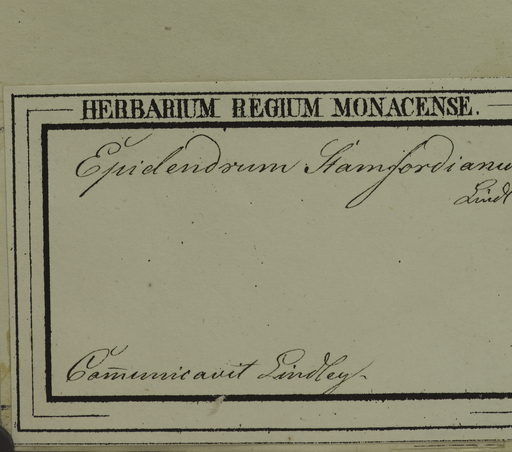 HERBARIUM REGIUM MONACENSE.
Epidendrum Stamfordianu
Lindl
Com̄unicavit Lindley